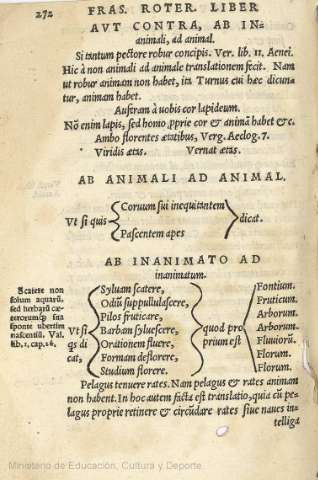 272 FRAS. ROTER. LIBER
AVT CONTRA, AB IN-
animali, ad animal.
Si tantum pectore robur concipis. Ver. lib. 11. Aenei.
Hic à non animali ad animale translationem fecit. Nam
ut robur animam non habet, ita Turnus cui hæc dicun-
tur, animam habet.
Auferam à uobis cor lapideum.
Nõ enim lapis, sed homo ꝓprie cor & animã habet &c.
Ambo florentes ætatibus, Verg. Aeclog. 7.
Viridis ætas. Vernat ætas.
AB ANIMALI AD ANIMAL.
Coruum sui inequitantem
Vt si quis dicat.
Pascentem apes
AB INANIMATO AD
inanimatum.
Scatere non
solum aquarũ,
sed herbarũ cæ-
terorumq́;
sponte ubertim
nascentiũ. Val.
lib. 1. cap. 26.
Syluam scatere, Fontium.
Odiũ suppullulascere, Fruticum.
Pilos fruticare, Arborum.
Vt si Barbam syluescere, quod pro Arborum.
qs di Orationem fluere, prium est Fluuiorũ.
cat, Formam deflorere, Florum.
Studium florere. Florum.
Pelagus tenuere rates. Nam pelagus & rates animam
non habent. In hoc autem facta est translatio, quia cũ pe-
lagus proprie retinere & circũdare rates siue naues in-
telliga
Ministerio de Educación, Cultura y Deporte